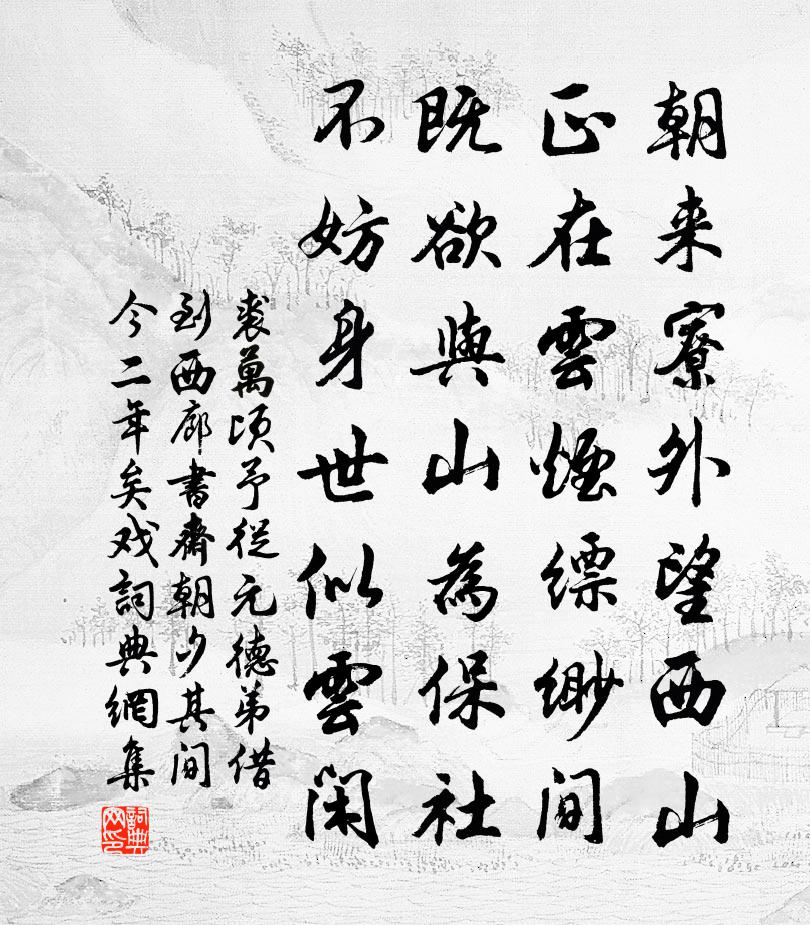 朝来寮外望西山
正在雲煙縹緲间
既欲與山為保社
不妨身世似雲闲
裘萬頃予從元德弟借
到西廊書齋朝夕其间
今二年矣戏詞典網集
詞典网印